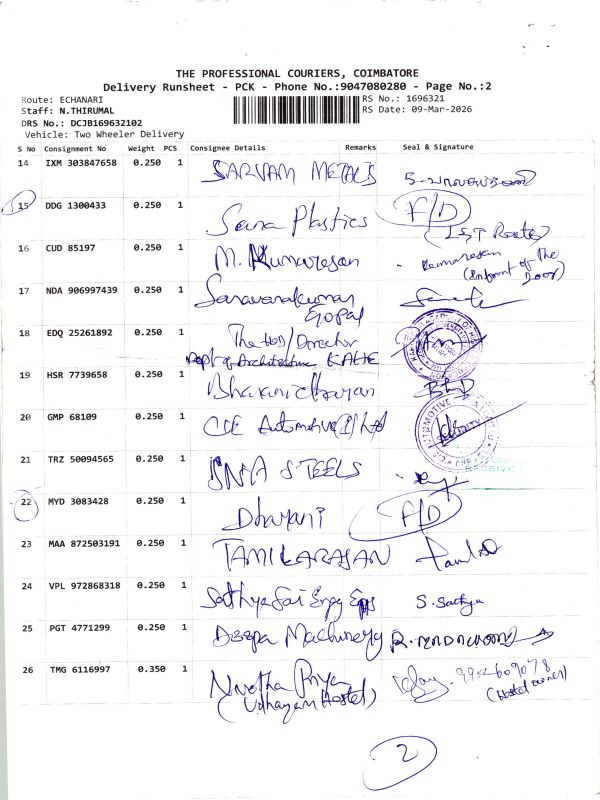 THE PROFESSIONAL COURIERS, COIMBATORE
Delivery Runsheet - PCK - Phone No.:9047080280 - Page No.:2
Route: ECHANARI
RS No.: 1696321
Staff: N.THIRUMAL
RS Date: 09-Mar-2026
DRS No.: DCJB169632102
Vehicle: Two Wheeler Delivery
S No Consignment No Weight PCS Consignee Details Remarks Seal & Signature
14 IXM 303847658 0.250 1 SARVAM METALS
15 DDG 1300433 0.250 1 Plastics F/D
(IST Route)
16 CUD 85197 0.250 1 M. Kumaresan Kumaresan
(Infront of the Door)
17 NDA 906997439 0.250 1 Saravanakumar
Gopal
18 EDQ 25261892 0.250 1 The HOD/Director
Dept of Architecture KAHE
19 HSR 7739658 0.250 1 Bharanidharan
20 GMP 68109 0.250 1 Automotive (I) Ltd
21 TRZ 50094565 0.250 1 STEELS
RECEIVED
22 MYD 3083428 0.250 1 Dharani F/D
23 MAA 872503191 0.250 1 TAMILARASAN
24 VPL 972868318 0.250 1 Sathya Sai Engg S. Sathya
25 PGT 4771299 0.250 1 Deepa Machinery
26 TMG 6116997 0.350 1 Nivetha Priya 9952609078
(Udhayam Hostel) (Hostel owner)
2